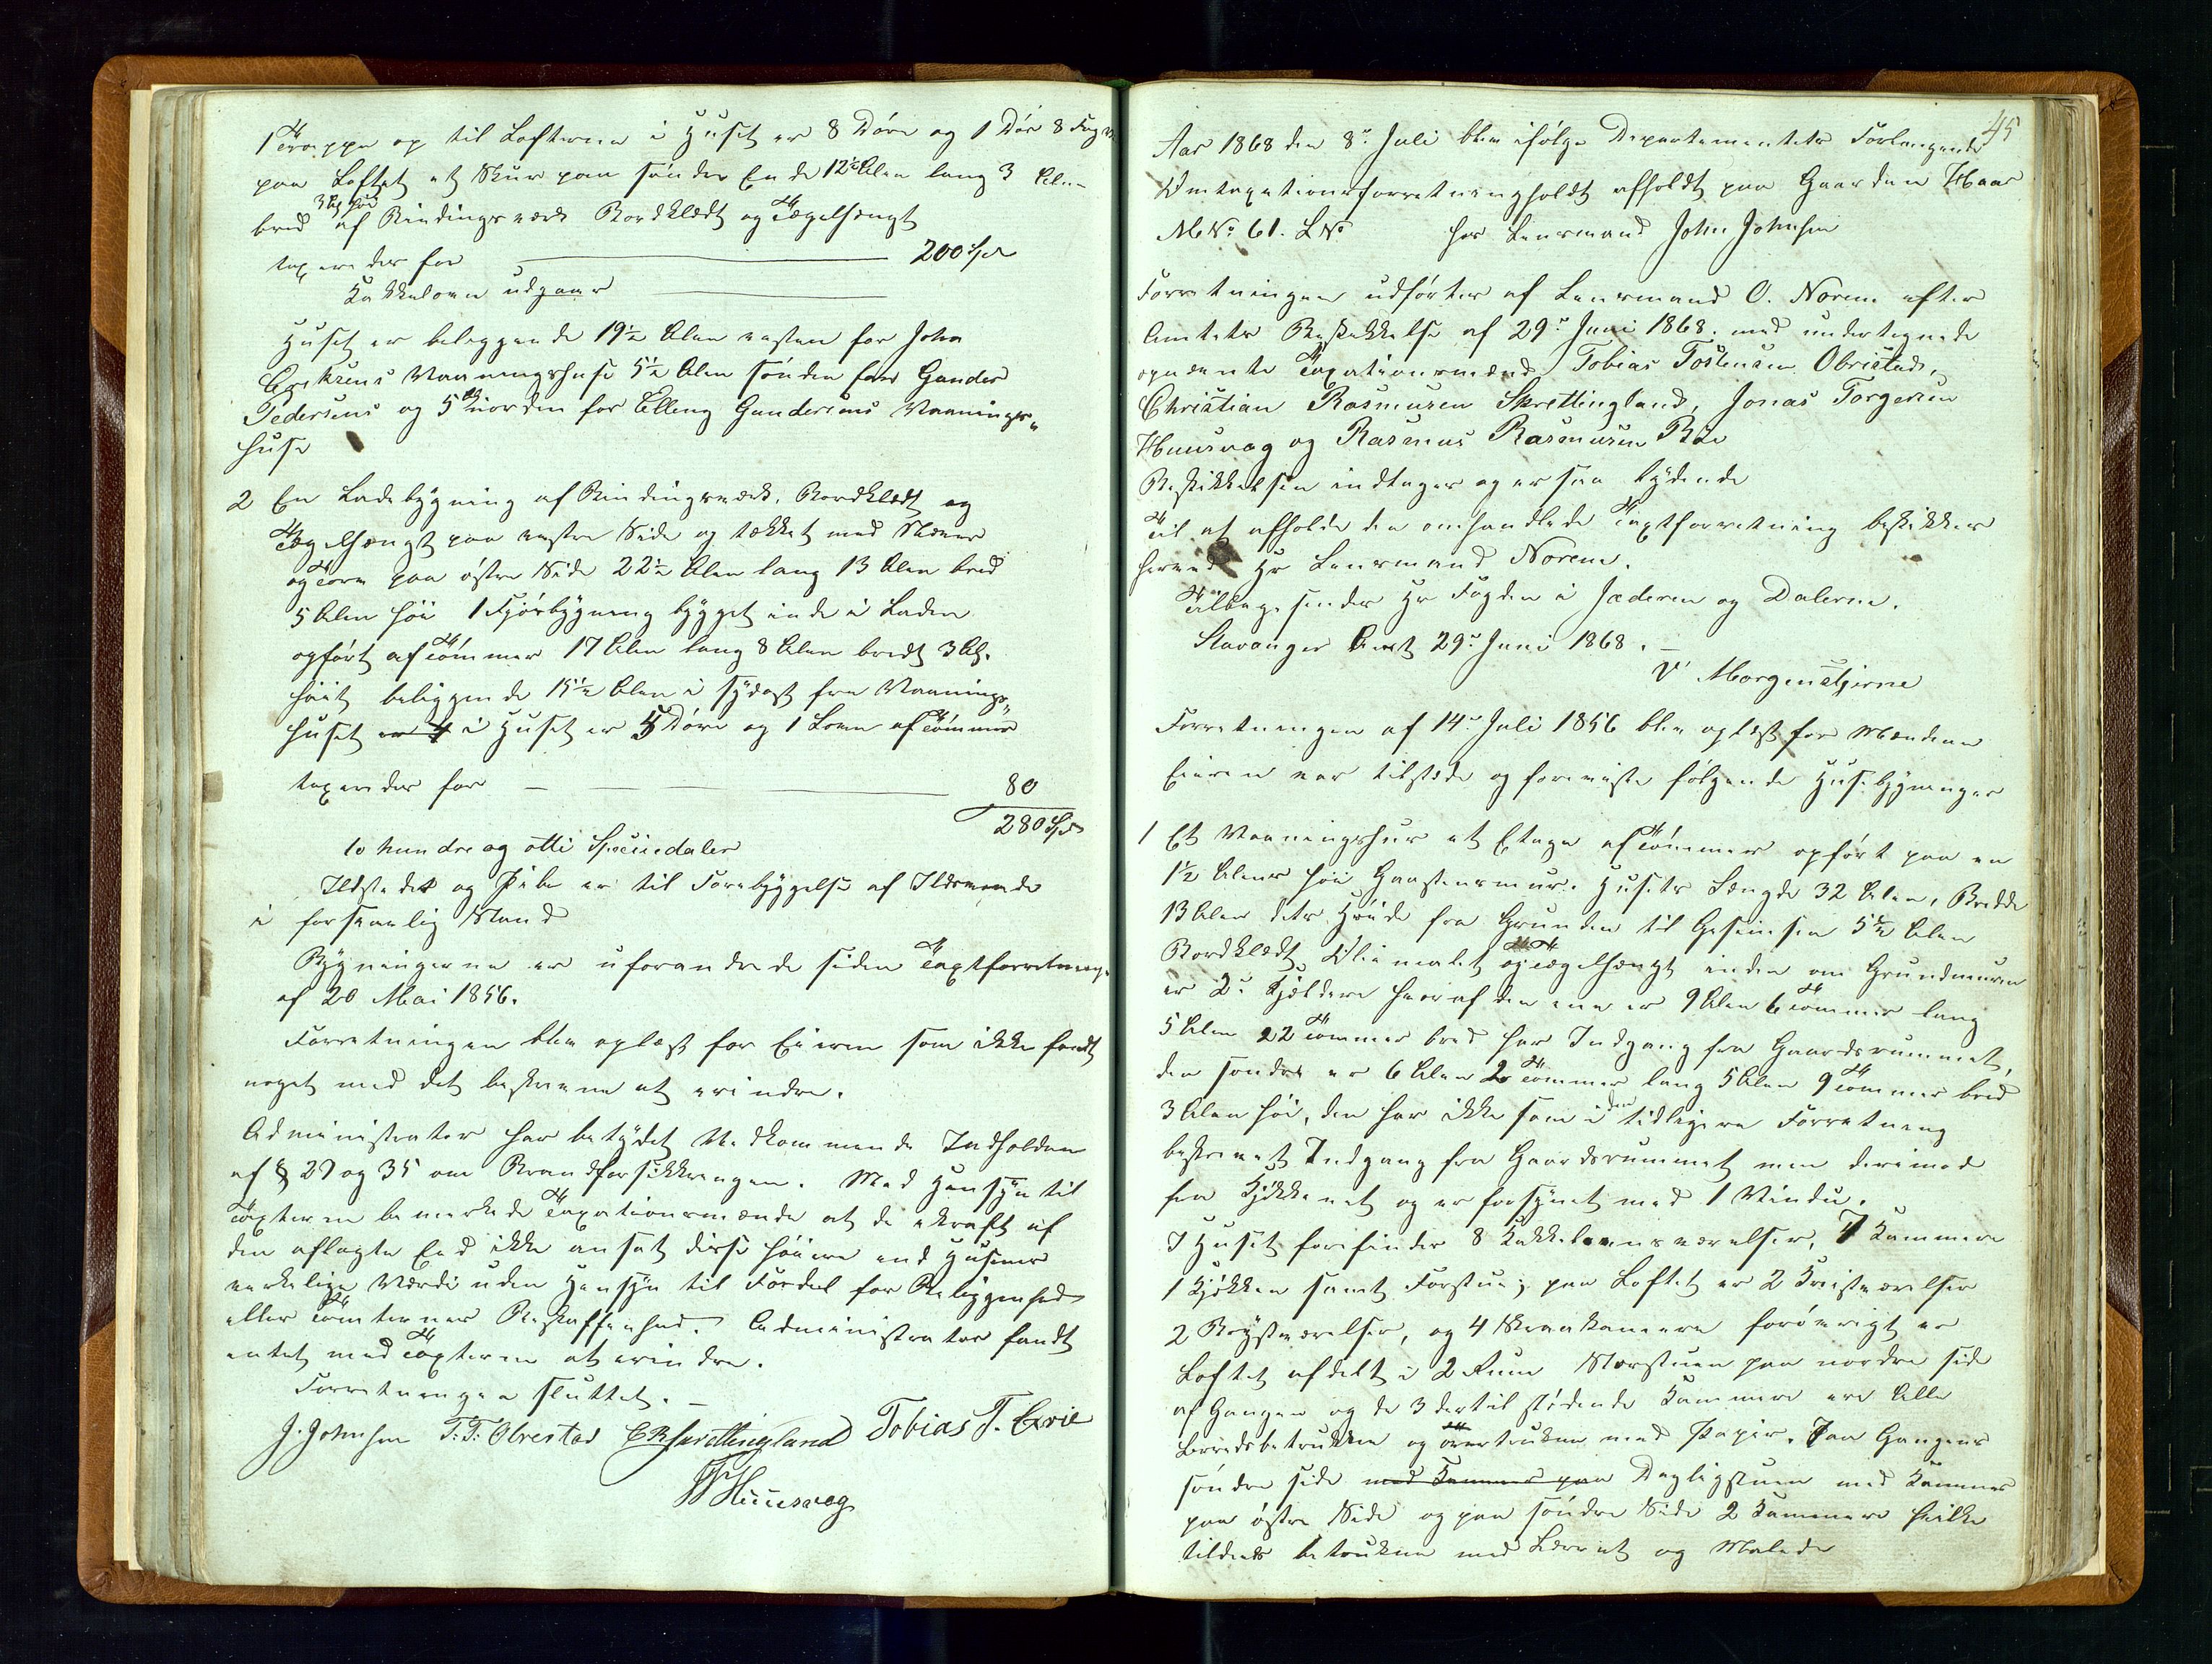 1 Trappe op til Lofterne i Huset er 8 Döre og 1 Dör 8 Fag
paa Loftet et Skur paa söndre Ende 12½ Alen lang 3 Alen
bred 3 Al höi af Bindingsværk Bordklædt og Tægelhængt
taxeredes for 200 Spd
Kakkelovn udgaar
Huset er beliggende 19½ Alen vesten for John
Eriksens Vaaningshuse 5½ Alen sönden for Gunder
Pedersens og 5 Al norden for Elling Gundersens Vaanings„
huse
2 En Ladebygning af Bindingsværk, Bordklædt og
Tægelhængt paa vestre Side og tækket med Næver
og Torv paa östre Side 22½ Alen lang 13 Alen bred
5 Alen höi 1 Fjösbygning bygget inde i Laden
opfört af Tömmer 17 Alen lang 8 Alen bredt 3 Al.
höit beliggende 15½ Alen i sydost fra Vaanings„
huset er 4 i Huset er 5 Döre og 1 Loen af Tömmer
taxeredes for 80
280 Spd
to hundre og otti Speciedaler
Ildstedet og Pibe er til Forebyggelse af Ildsvaade
i forsvarlig Stand
Bygningerne er uforandrede siden Taxtforretning
af 20 Mai 1856.
Forretningen blev oplæst for Eieren som ikke fandt
noget med det beskrevne at erindre.
Administrator har betydet Vedkommende Indholden
af § 29 og 35 om Brandforsikkringen. Med Hensyn til
Taxterne bemerkede Taxationsmændene at de i kraft af
den aflagte Eed ikke ansat disse höiere end Husenes
verkelige Værdi uden Hensyn til Fordeel for Beliggenhed
eller Tomternes Beskaffenhed. Administrator fandt
intet med Taxterne at erindre.
Forretningen sluttet.
J. Johnsen T. T. Obrestad C R Skrettingland Tobias T. Evie
Huusvog
45
Aar 1868 den 8de Juli blev ifölge Departementets Forlangende
Omtaxationsforretning holdt afholdt paa Gaarden Haar
M No 61. L No hos Lensmand John Johnsen
Forretningen udförtes af Lensmand O. Norem efter
Amtets Beskikkelse af 29de Juni 1868. med undertegnede
opnævnte Taxationsmænd Tobias Tostensen Obrestad,
Christian Rasmusen Skrettingland, Jonas Torgersen
Huusvog og Rasmus Rasmusen Böe
Beskikkelsen indtages og er saa lydende
Til at afholde den omhandlede Taxtforretning beskikkes
herved Hr Lensmand Norem.
Tilbagesendes Hr Fogden i Jæderen og Dalerne.
Stavanger Amt 29de Juni 1868.
V Morgenstjerne
Forretningen af 14de Juli 1856 blev oplæst for Mændene
Eieren var tilstæde og foreviste fölgende Husebygninger
1 Et Vaaningshus et Etage af Tömmer opfört paa en
1½ Alens höi Graastensmur. Husets Længde 32 Alen, Bredde
13 Alen dets Höide fra Grunden til Gesimsen 5½ Alen
Bordklædt Oliemalet og Tægelhængt inden om Grundmuren
er 2de Kjeldere hvoraf den ene er 9 Alen 6 Tommer lang
5 Alen 22 Tommer bred har Indgang fra Gaardsrummet,
den söndre er 6 Alen 20 Tommer lang 5 Alen 9 Tommer bred
3 Alen höi, den har ikke som i den tidligere Forretning
beskrevet Indgang fra Gaardsrummet men derimod
fra Kjökkenet og er forsynet med 1 Vindu.
I Huset forefindes 8 Kakkelovnsværelser, 7 Kammere
1 Kjökken samt Forstue; paa Loftet er 2 Kvistværelser
2 Røystværelser, og 4 Skraakamere foröverigt er
Loftet afdelt i 2 Rum Storstuen paa nordre side
af Gangen og de 3 dertil stödende Kammere ere Alle
Lerredsbetrukken og overtrukne med Papir. Paa Gangens
söndre side med Kammers paa Dagligstuen med Kammer
paa östre Side og paa söndre Side 2 Kammere hvilke
tildeels betrukne med Lærret og Malede